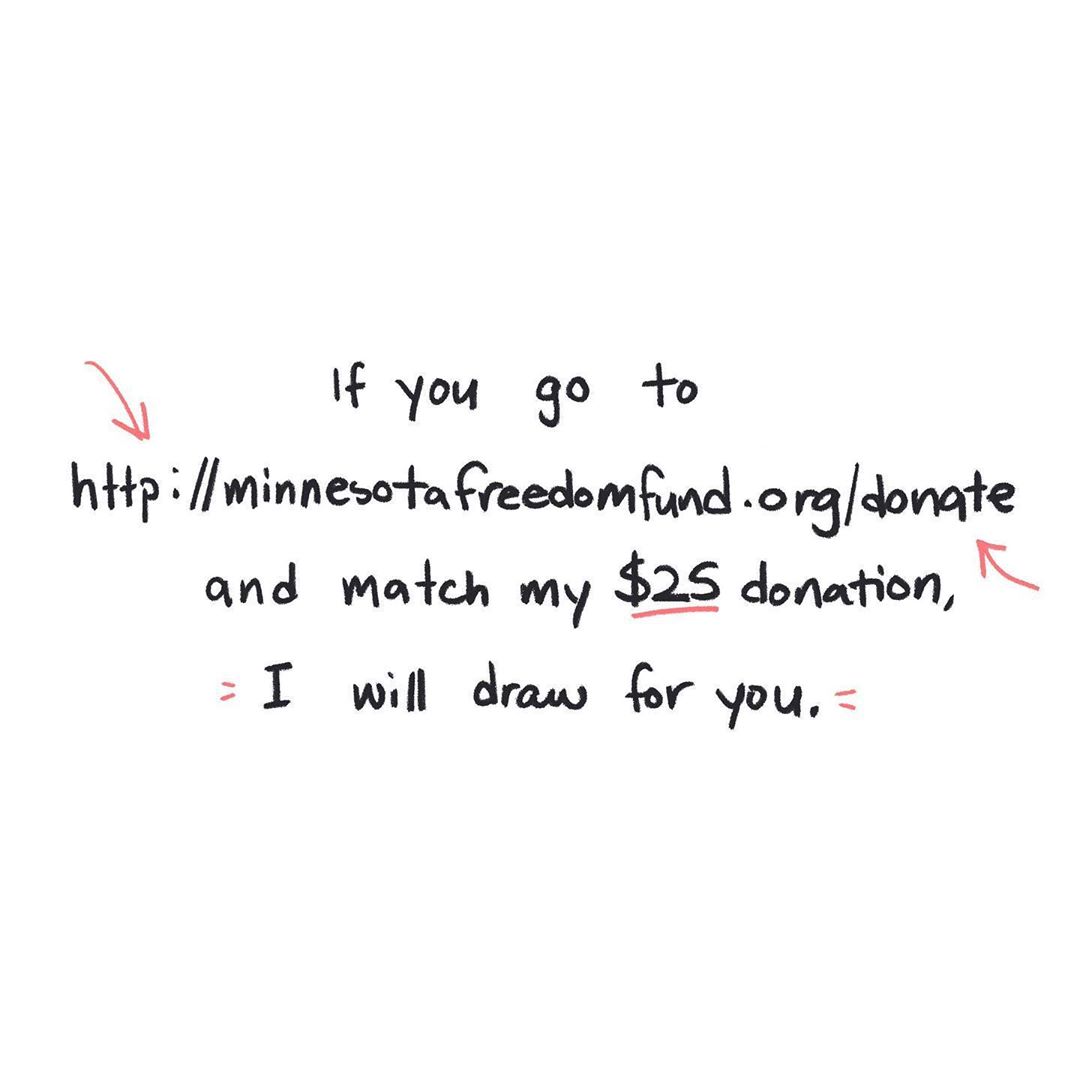 If you go to
http://minnesotafreedomfund.org/donate
and match my $25 donation,
I will draw for you.